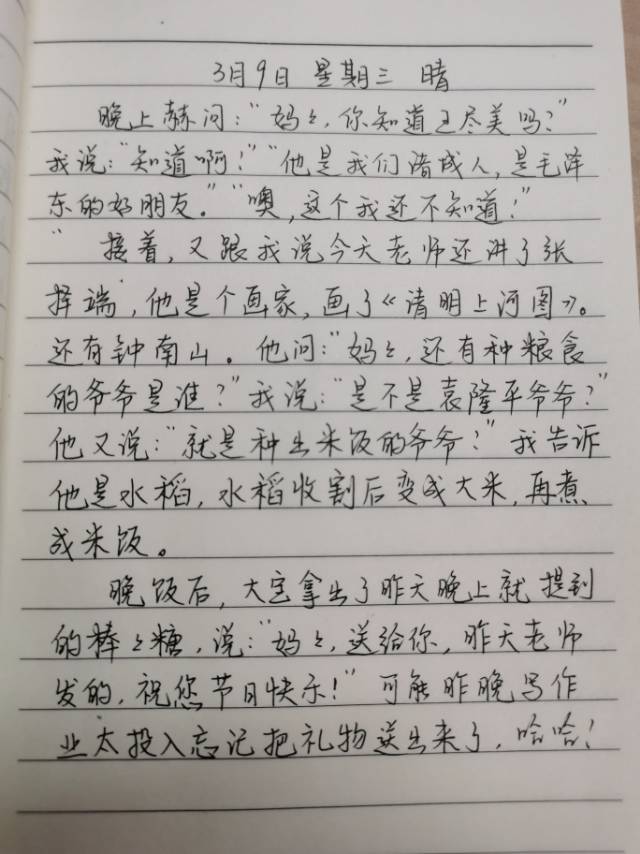 3月9日 星期三 晴
晚上赫问:“妈々,你知道王尽美吗?”
我说:“知道啊!”“他是我们诸城人,是毛泽
东的好朋友。”“噢,这个我还不知道!”
“接着,又跟我说今天老师还讲了张
择端,他是个画家,画了《清明上河图》。
还有钟南山。他问:“妈々,还有种粮食
的爷爷是谁?”我说:“是不是袁隆平爷爷?”
他又说:“就是种出米饭的爷爷?”我告诉
他是水稻,水稻收割后变成大米,再煮
成米饭。
晚饭后,大宝拿出了昨天晚上就提到
的棒々糖,说:“妈々,送给你,昨天老师
发的,祝您节日快乐!”可能昨晚写作
业太投入忘记把礼物送出来了,哈哈!